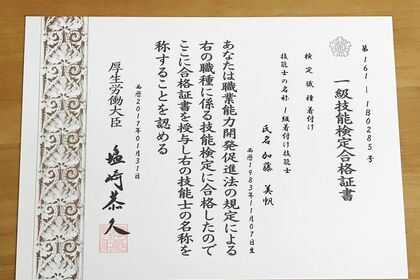 第161-1B0285号
一級技能検定合格証書
検定職種 着付け
技能士の名称 1級着付け技能士
氏名 加藤 美帆
西暦1983年11月07日生
あなたは職業能力開発促進法の規定による
右の職種に係る技能検定に合格したので
ここに合格証書を授与し右の技能士の名称を
称することを認める
西暦2017年01月31日
厚生労働大臣 塩崎恭久